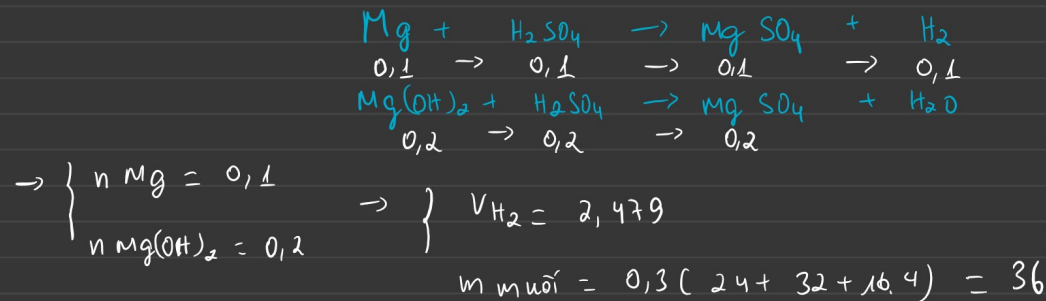 Mg + H₂SO₄ → Mg SO₄ + H₂
0,1 → 0,1 → 0,1 → 0,1
Mg(OH)₂ + H₂SO₄ → Mg SO₄ + H₂O
0,2 → 0,2 → 0,2
→ { n Mg = 0,1
n Mg(OH)₂ = 0,2
→ } V H₂ = 2,479
m muối = 0,3 ( 24 + 32 + 16.4) = 36